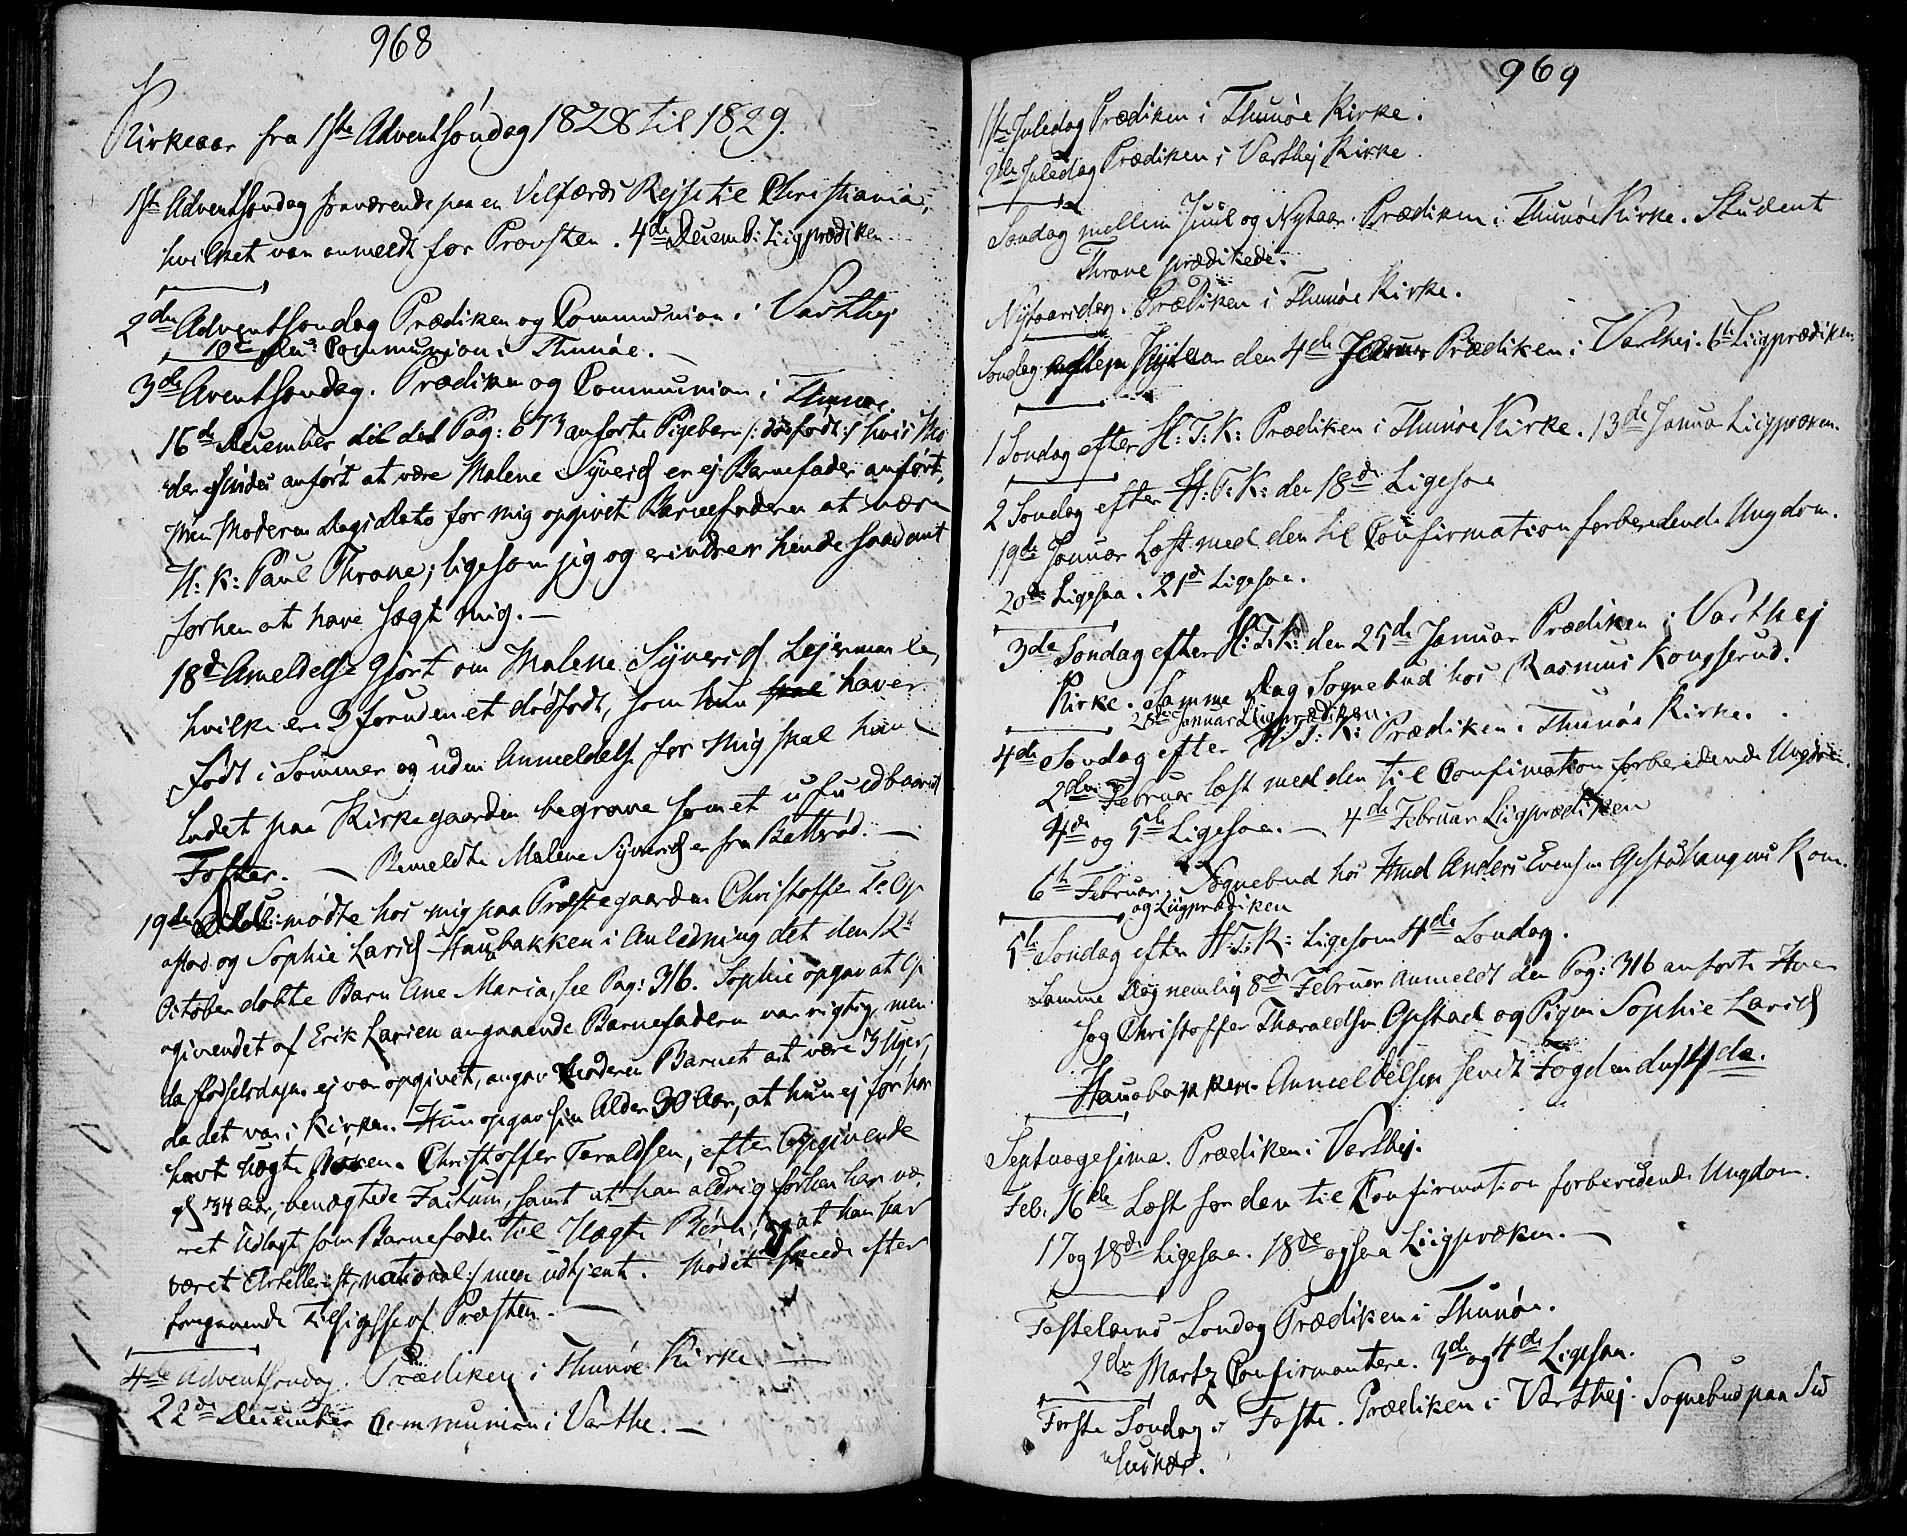 968
Kirkeaar fra 1ste Adventsöndag 1828 til 1829.
1ste Adventsøndag fraværende paa en Velfærds Rejse til Christiania,
hvilket var anmeldt for Provsten. 4de Decemb: Liigprædiken
2den Adventsøndag Prædiken og Communion i Varthej
10de Communion i Thunöe.
3de Aventsøndag. Prædiken og Communion i Thunöe.
16de December til det Pag: 673 anførte Pigebarn /: dödfödt :/ hvis Mo-
der findes anført at være Malene Syversd er ej Barnefader anført,
Men Moderen Dags Dato for mig opgivet Barnefaderen at være
U: K: Paul Throne; ligesom jeg og erindrer hende saadant
forhen at have sagt mig.
18de Anmeldelse gjort om Malene Syversd Lejermaale,
hvilke ere 3 foruden et dödfödt, som hun skal haver
födt i Sommer og uden Anmeldelse for Mig skal have
ladet paa Kirkegaarden begrave som et ufuldbaaret
Foster. — Bemeldte Malene Syversd er fra Botteröd.
19de Dec: mødte hos mig paa Præstegaarden Christoffer T: Op-
stad og Sophie Larsd Haubakken i Anledning det den 12te
October döbte Barn Ane Maria, see Pag: 316. Sophie opgav at Op-
givendet af Erik Larsen angaaende Barnefaderen var rigtig, men
da Födselsdagen ej var opgivet, angav Moderen Barnet at være 3 Uger,
da det var i Kirken. Hun opgav sin Alder 30 Aar, at hun ej før har
havt uægte Börn. Christoffer Taraldsen, efter Opgivende
34 Aar, benægtede Factum, samt at han aldrig forhen har væ-
ret Udlagt som Barnefader til Uægte Børn, og at han har
været Artellerist, national :/ men udtjent. Mødet skeede efter
foregaaende Tilsigelse af Præsten.
4de Adventsøndag. Prædiken i Thunöe Kirke
22de December Communion i Varthe.
969
1ste Juledag Prædiken i Thunöe Kirke.
2den Juledag Prædiken i Varthej Kirke
Søndag mellem Juul og Nytaar. Prædiken i Thunöe Kirke. Student
Throne prædikede.
Nytaarsdag. Prædiken i Thunöe Kirke.
Søndag efter Nytaar den 4de Prædiken i Varthej. 6te Liigprædiken
1 Søndag efter H: T: K: Prædiken i Thunöe Kirke. 13de Januar Liigpræken.
2 Søndag efter H: T: K: den 18de Ligesaa
19de Januar Læst med den til Confirmation forberedende Ungdom.
20de Ligesaa. 21de Ligesaa.
3de Søndag efter H: T: K: den 25de Januar Prædiken i Varthej
Kirke. Samme Dag Sognebud hos Rasmus Kongserud.
28de Januar Liigprædiken.
4de Søndag efter H: T: K: Prædiken i Thunöe Kirke.
2den Februar læst med den til Confirmation forberedende Ungdom.
4de og 5te Ligesaa. — 4de Februar Liigprædiken
6te Februar Sognebud hos Anders Evensen
og Liigprædiken
5te Søndag efter H: T: K: Ligesom 4de Søndag.
Samme Dag nemlig 8de Februar Anmeldt den Pag: 316 anførte
Sag Christoffer Tharaldsen Opstad og Pigen Sophie Larsd
Haubakken. Anmeldelsen sendt Fogden den 14de.
Septuagesima. Prædiken i Varthej.
Feb: 16de Læst for den til Confirmation forberedende Ungdom.
17 og 18de Ligesaa. 18de ogsaa Liigpræken.
Fastelavns Søndag Prædiken i Thunöe.
2den Martz Confirmantere. 3de og 4de Ligesaa.
Første Søndag i Faste. Prædiken i Varthej. Sognebud paa